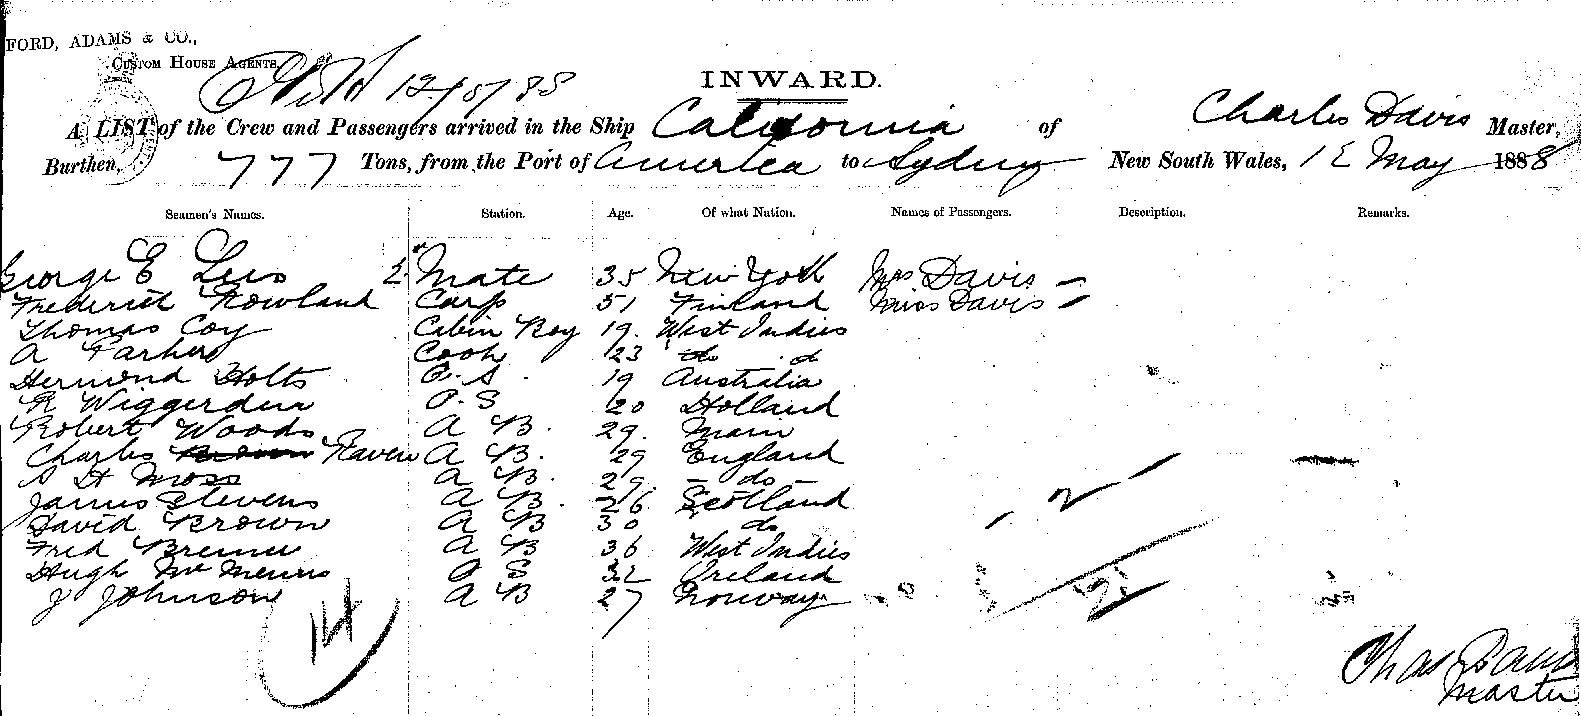 FORD, ADAMS & CO.,
CUSTOM HOUSE AGENTS.
12/5/88
INWARD.
A LIST of the Crew and Passengers arrived in the Ship California of Charles Davis Master,
Burthen, 777 Tons, from the Port of America to Sydney New South Wales, 12 May 1888
Seamen's Names. Station. Age. Of what Nation. Names of Passengers. Description. Remarks.
George E Lees 2 Mate 35 New York Mrs Davis -
Frederick Rowland Carp 51 Finland Miss Davis -
Thomas Coy Cabin Boy 19. West Indies
A Parker Cook 23 do do
Hermond Holts O. S 19 Australia
R Wiggerden O. S 20 Holland
Robert Woods A B. 29. Main
Charles Raven A B. 29 England
S H Moss A B. 29. - do -
James Stevens A B. 26 Scotland
David Brown A B 30 do
Fred Bremer A B 36 West Indies
Hugh Mc O S 32 Ireland
J Johnson A B 27 Norway
14
2
2
Chas Davis
Master